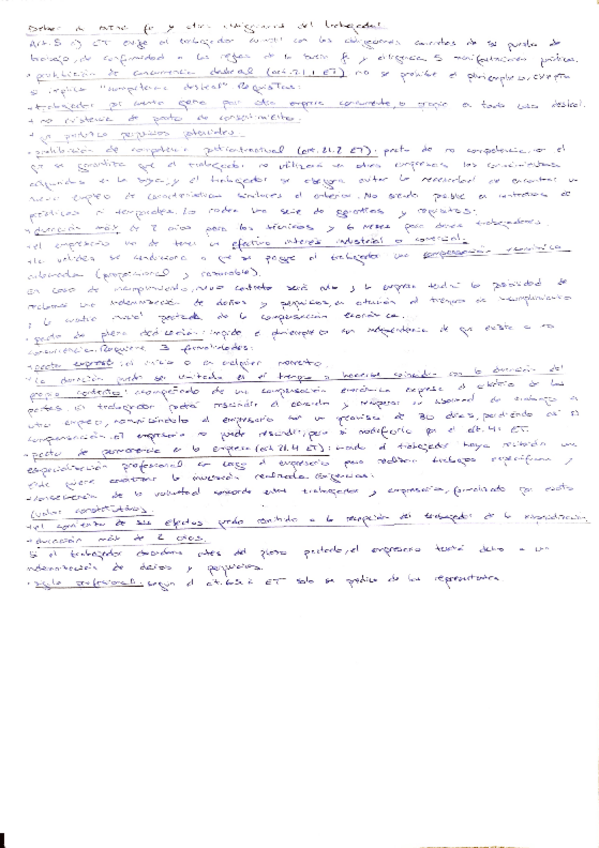 Deber de buena fe y otras obligaciones del trabajador
Art. 5 a) ET exige al trabajador cumplir con las obligaciones concretas de su puesto de
trabajo, de conformidad a las reglas de la buena fe y diligencia. 5 manifestaciones prácticas.
• prohibición de concurrencia desleal (art. 21.1 ET) no se prohíbe el pluriempleo, excepto
si implica "competencia desleal". Requisitos:
• trabajador por cuenta ajena para otra empresa concurrente, o propia en todo caso desleal.
• no existencia de pacto de consentimiento.
• perjuicios potenciales.
• prohibición de competencia postcontractual (art. 21.2 ET): pacto de no competencia, el
que se garantiza que el trabajador no utilizará en otras empresas los conocimientos
adquiridos en la suya, y el trabajador se asegura evitar la necesidad de encontrar un
nuevo empleo de características similares al anterior. No siendo posible
prácticas ni temporales. Lo rodea una serie de garantías y requisitos:
• duración máx de 2 años para los técnicos y 6 meses para demás trabajadores.
• el empresario ha de tener un efectivo interés industrial o comercial.
• la validez se condiciona a que se pague al trabajador una compensación económica
adecuada (proporcional y razonable).
En caso de incumplimiento, nuevo contrato será nulo y la empresa tendrá la posibilidad de
reclamar una indemnización de daños y perjuicios, en atención al tiempo de incumplimiento
y la cuantía pactada de la compensación económica.
• pacto de plena dedicación: impide el pluriempleo con independencia de que exista o no
concurrencia. Requiere 3 formalidades:
• pacto expreso: al inicio o en cualquier momento.
• la duración puede ser limitada en el tiempo o hacerse coincidir con la duración del
propio contrato: acompañado de una compensación económica expresa al arbitrio de las
partes. El trabajador podrá rescindir el acuerdo y recuperar su libertad de trabajo en
otro empleo, comunicándolo al empresario con un preaviso de 30 días, perdiendo así la
compensación. El empresario no puede rescindir, pero sí modificarlo por el art. 41 ET.
• pacto de permanencia en la empresa (art. 21.4 ET): cuando el trabajador haya recibido una
especialización profesional con cargo al empresario para realizar trabajos específicos y
éste quiere la inversión realizada. Exigencias:
• consecuencia de la voluntad acordada entre trabajador y empresario, formalizado por escrito
(valor constitutivo).
• el comienzo de sus efectos queda a la recepción del trabajador de la especialización.
• duración máx de 2 años.
Si el trabajador abandona antes del plazo pactado, el empresario tendrá dcho a una
indemnización de daños y perjuicios.
• sigilo profesional: según el ET solo se predica de los representantes